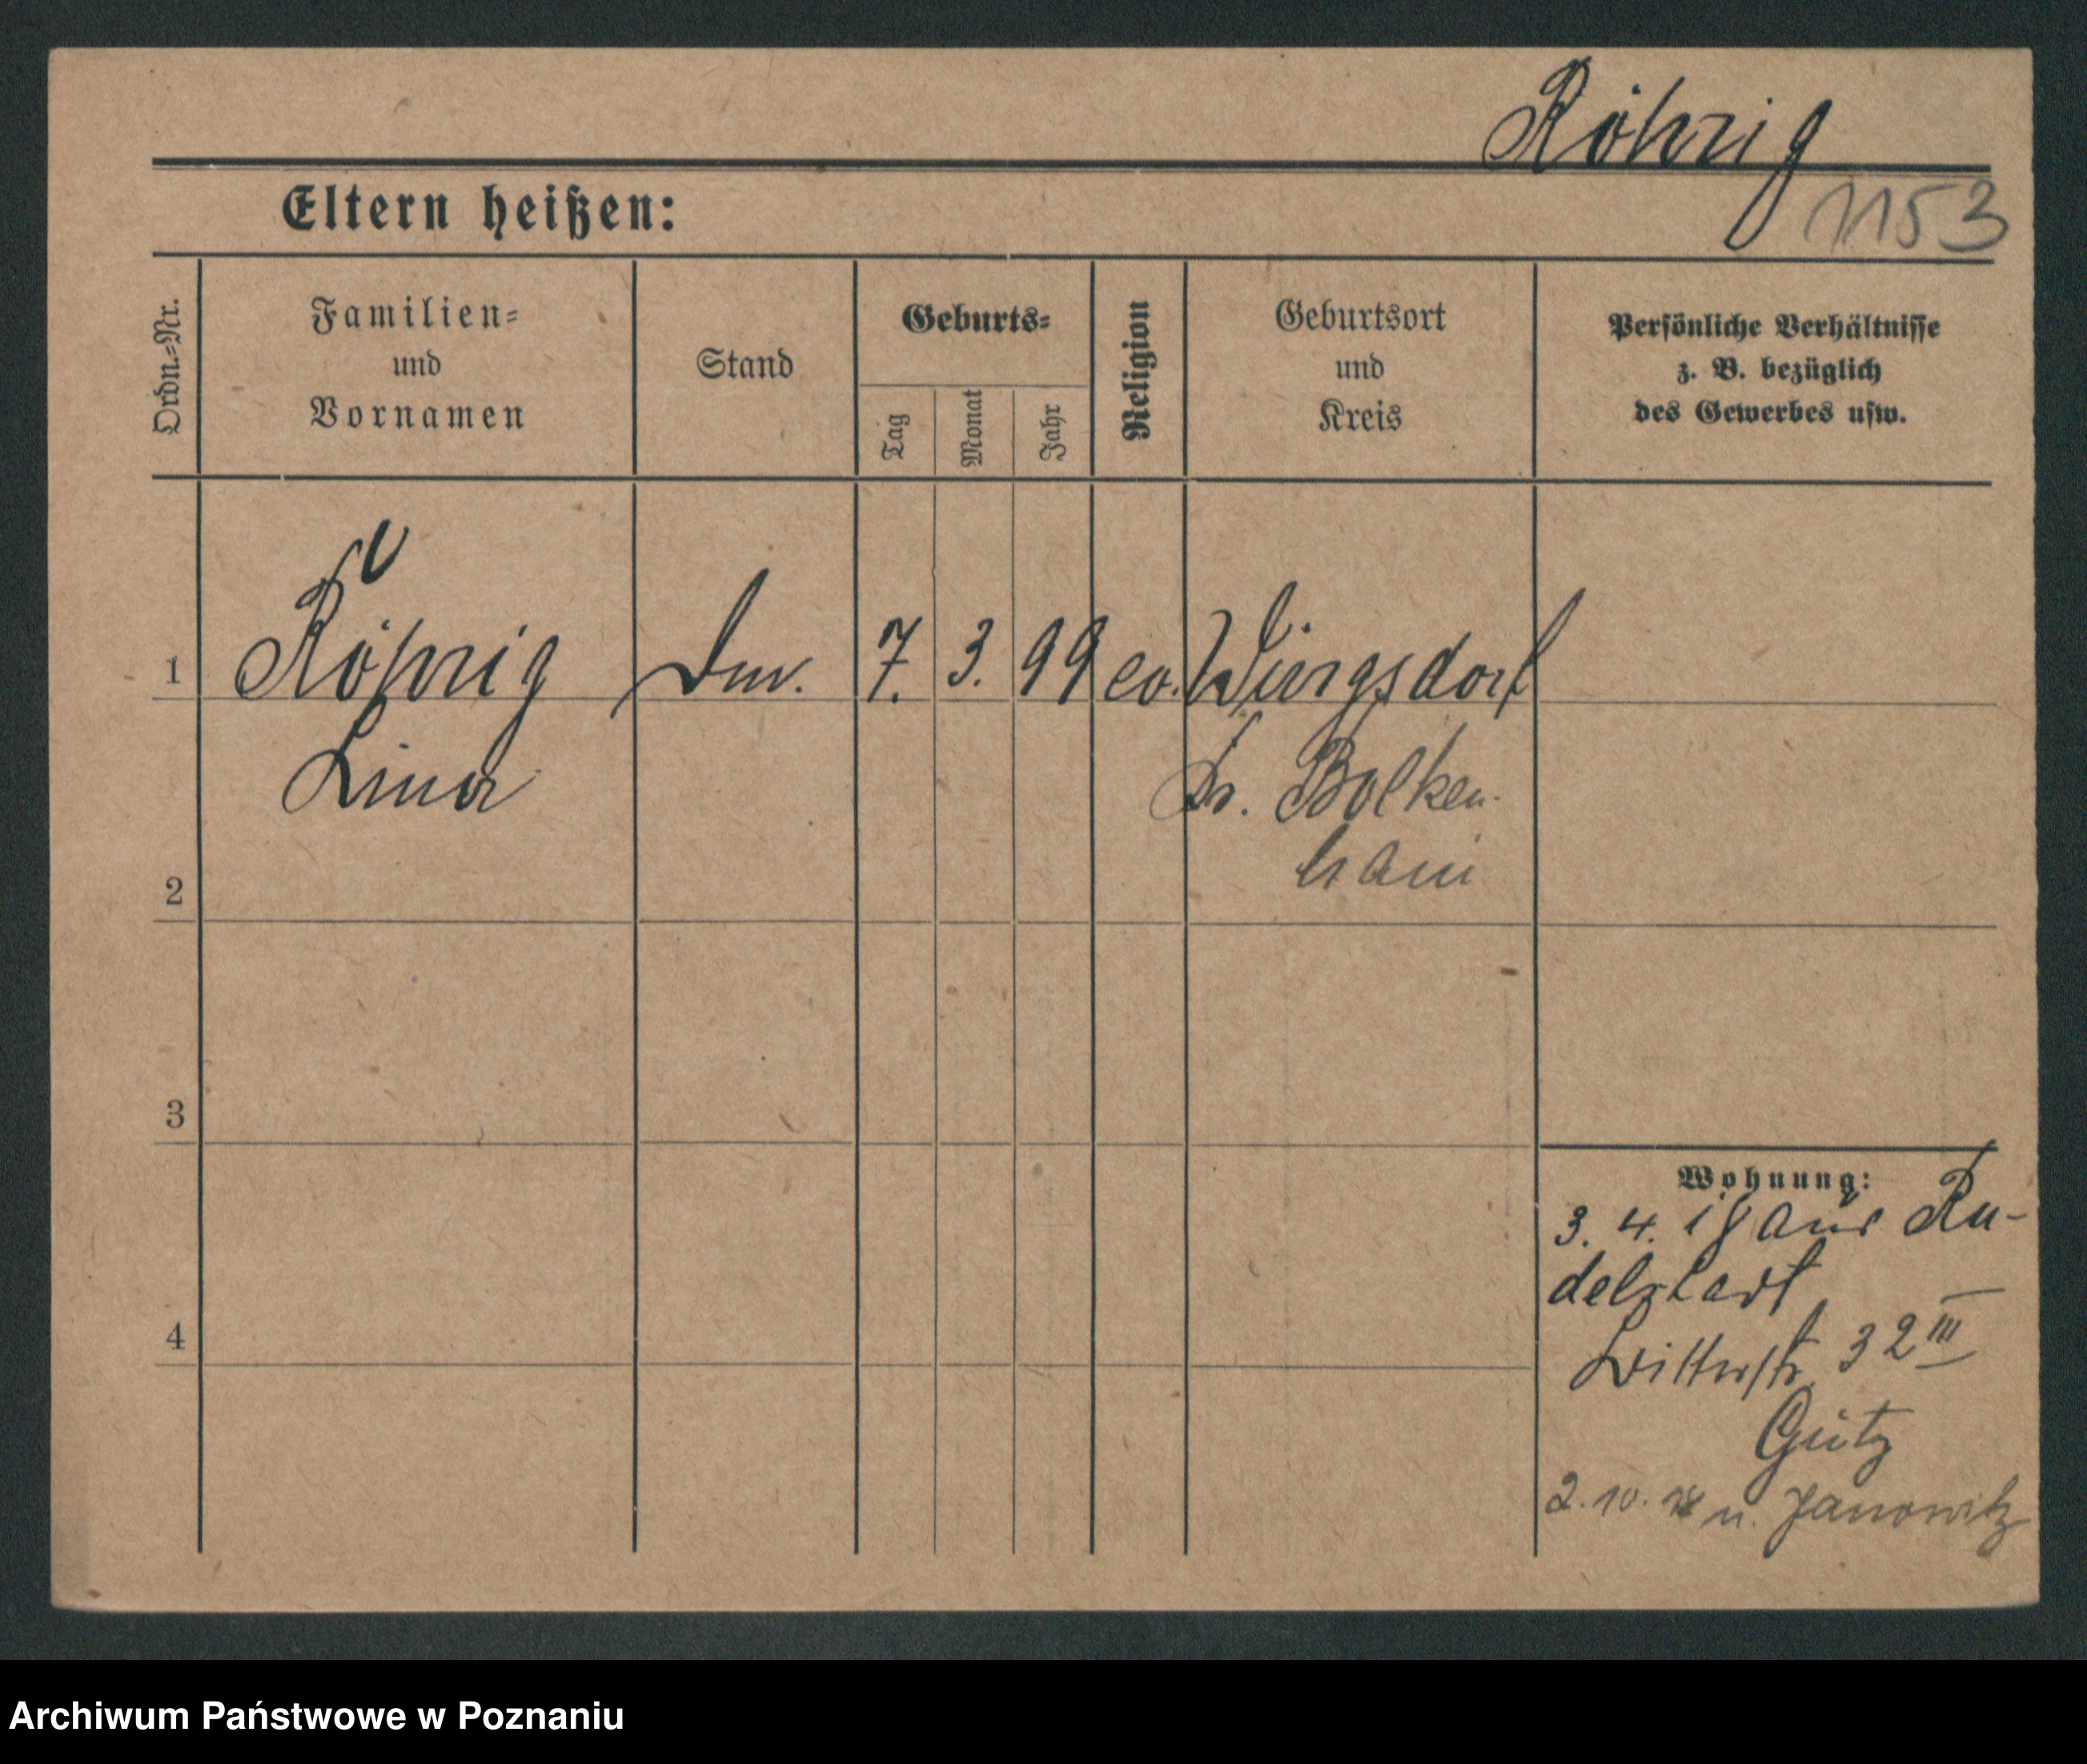 Röhrig
1153
Eltern heißen:
Ordn.-Nr.
Familien-
und
Vornamen
Stand
Geburts-
Tag
Monat
Jahr
Religion
Geburtsort
und
Kreis
Persönliche Verhältnisse
z. B. bezüglich
des Gewerbes usw.
1
Röhrig
7. 3. 99 ev. Würgsdorf
Lina
Kr. Bolken-
hain
2
3
4
Wohnung:
3. 4. 18 aus Ru-
delstadt
Ritterstr. 32 III
2. 10. 18 n. Janowitz
Archiwum Państwowe w Poznaniu